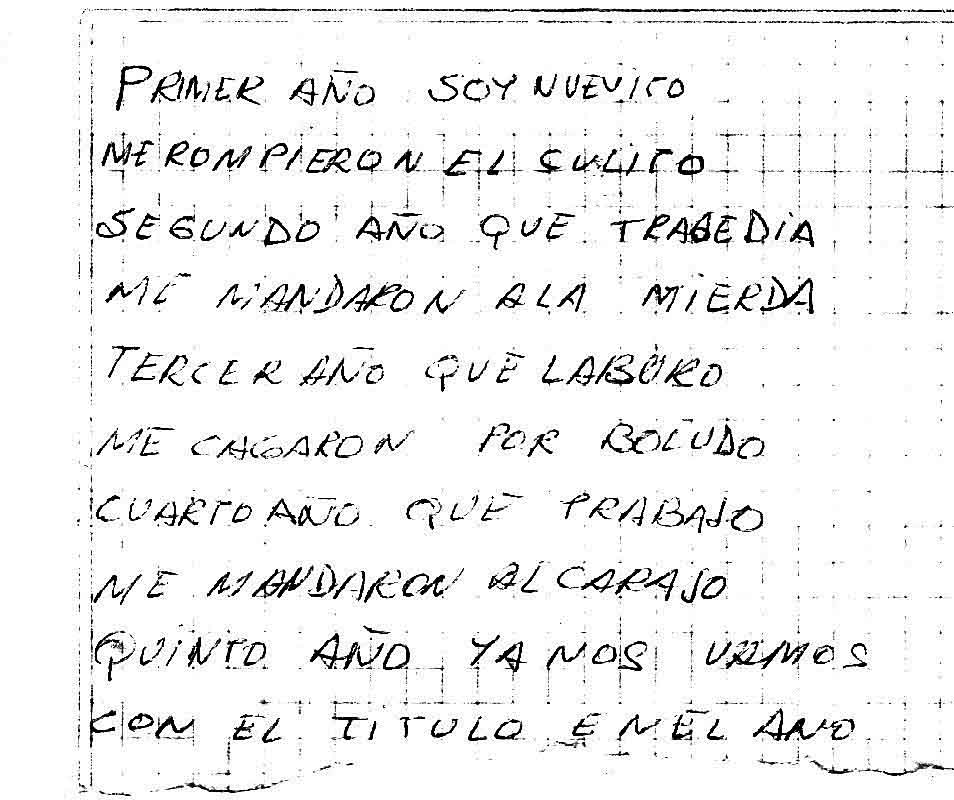 PRIMER AÑO SOY NUEVITO
ME ROMPIERON EL CULITO
SEGUNDO AÑO QUE TRAGEDIA
ME MANDARON A LA MIERDA
TERCER AÑO QUE LABURO
ME CAGARON POR BOLUDO
CUARTO AÑO QUE TRABAJO
ME MANDARON AL CARAJO
QUINTO AÑO YA NOS VAMOS
CON EL TITULO EN EL ANO